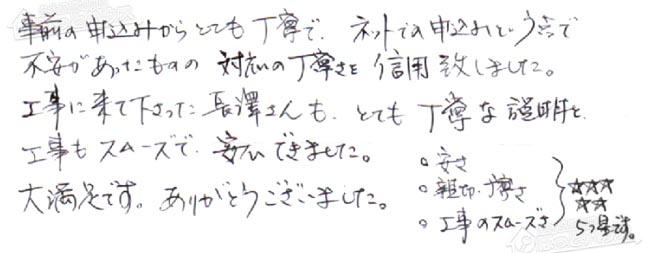 事前の申込みからとても丁寧で、ネットでの申込みという点で
不安があったものの 対応の丁寧さを信用致しました。
工事に来て下さった長澤さんも、とても丁寧な説明と、
工事もスムーズで、安心できました。
大満足です。ありがとうございました。
。安さ
。親切・丁寧さ
。工事のスムーズさ
☆☆☆
☆☆
5つ星です。